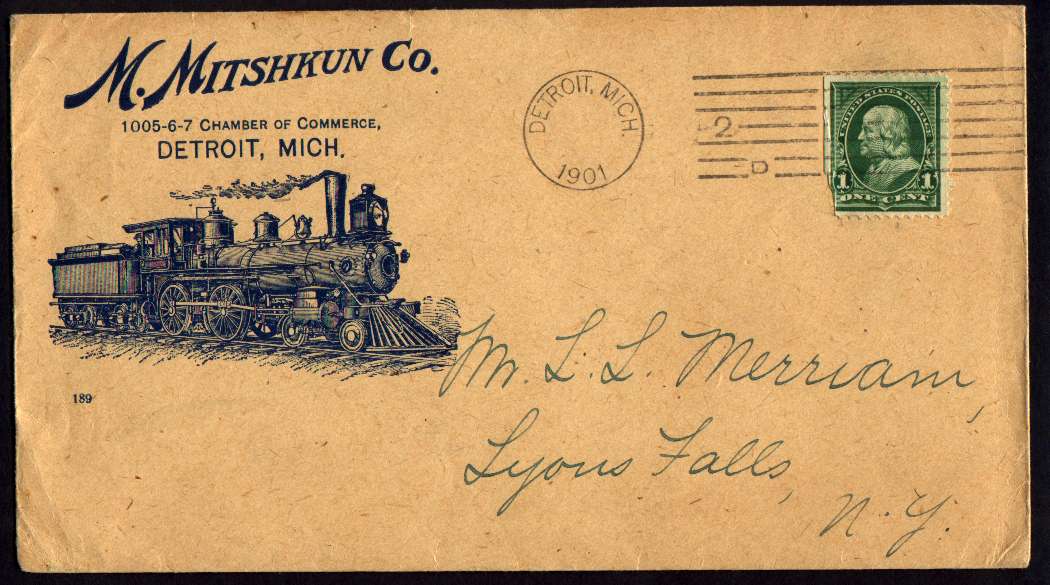 M. MITSHKUN CO.
1005-6-7 CHAMBER OF COMMERCE,
DETROIT, MICH.
189
DETROIT, MICH.
1901
2
D
UNITED STATES POSTAGE
1 1
ONE CENT
Mr. L. L. Merriam,
Lyons Falls,
N.Y.